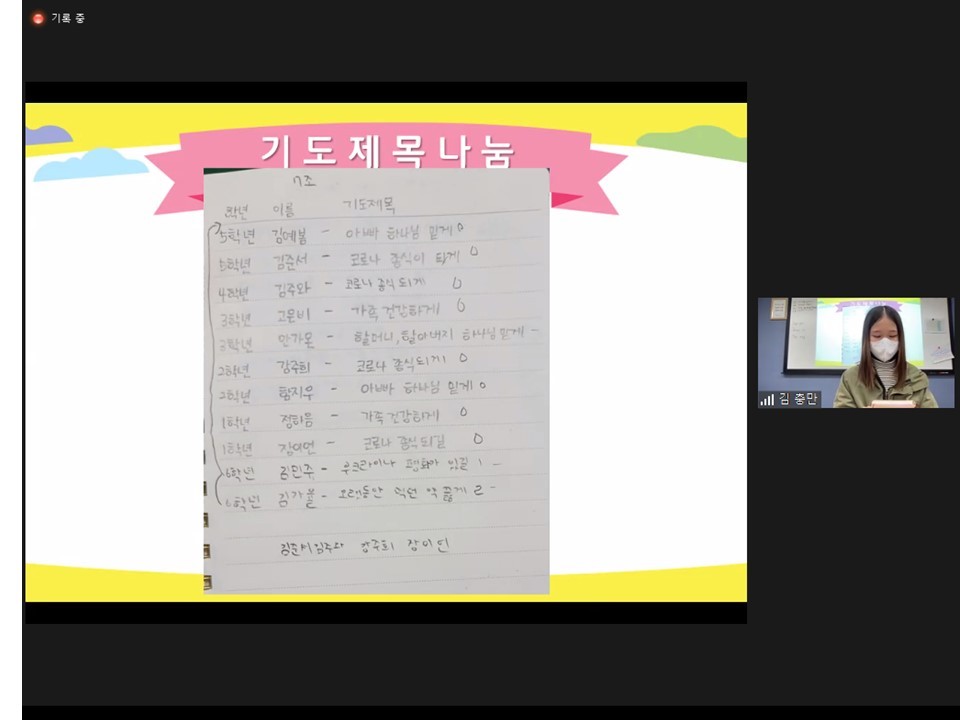 기록 중
기도제목나눔
7조
학년 이름 기도제목
5학년 김예봄 - 아빠 하나님 믿게 0
김준서 - 코로나 종식이 되게 0
4학년 김주와 - 코로나 종식되게 0
3학년 고운비 - 가족 건강하게 0
3학년 안가온 - 할머니, 할아버지 하나님 믿게 -
2학년 강주희 - 코로나 종식되게 0
2학년 황지우 - 아빠 하나님 믿게 0
1학년 정하음 - 가족 건강하게 0
1학년 장이언 - 코로나 종식되길 0
6학년 김민주 - 우크라이나 평화가 있길 1 -
6학년 - 오랫동안 약 끊게 2 -
강주희 장이언
김 충만